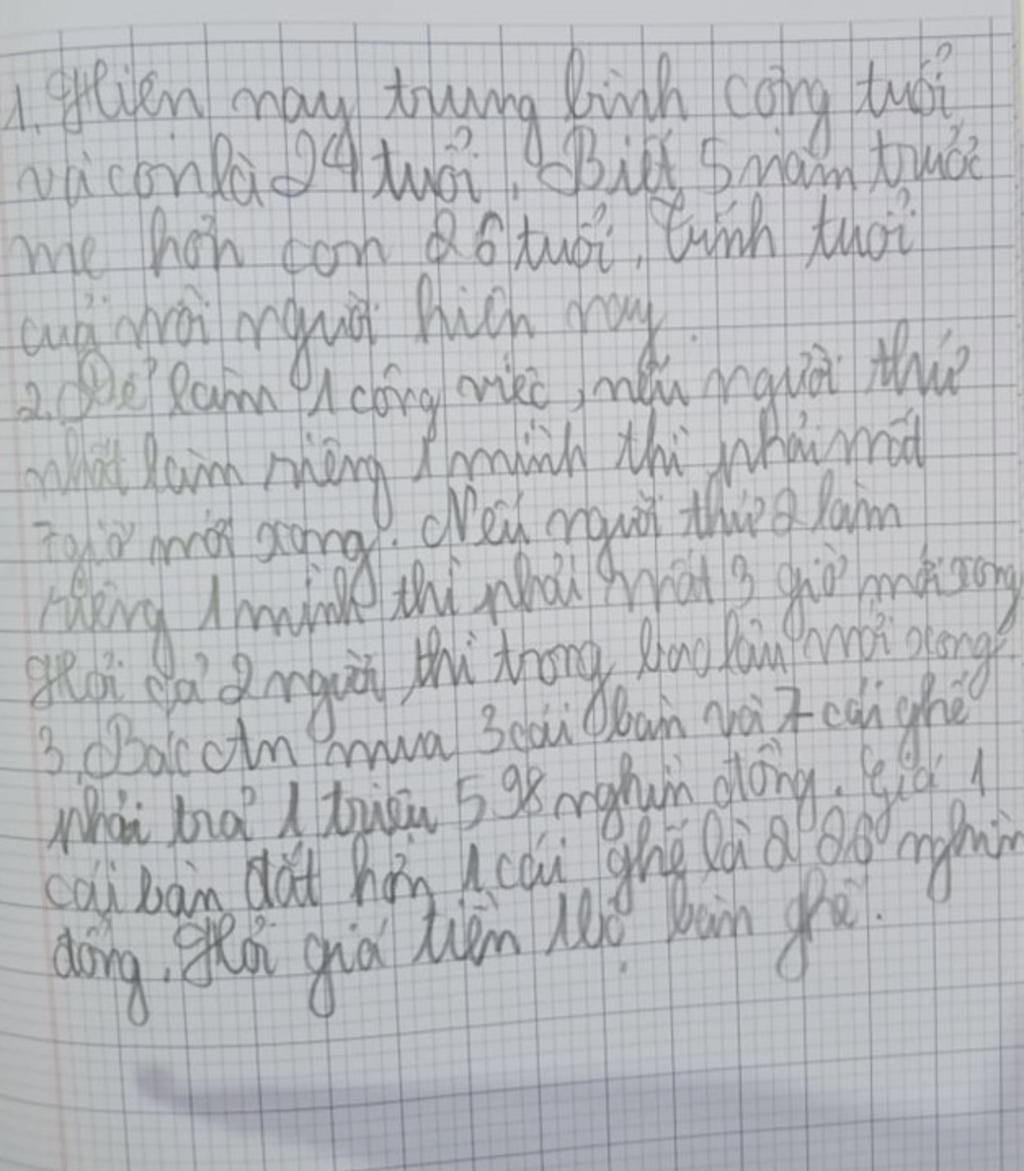 1. Hiện nay trung bình cộng tuổi
và con là 24 tuổi. Biết 5 năm trước
mẹ hơn con 26 tuổi. Tính tuổi
của mỗi người hiện nay.
2. Để làm 1 công việc, nếu người thứ
nhất làm riêng 1 mình thì phải mất
7 giờ mới xong. Nếu người thứ 2 làm
riêng 1 mình thì phải mất 3 giờ mới xong
Hỏi cả 2 người thì trong bao lâu mới xong?
3. Bác An mua 3 cái bàn và 7 cái ghế
phải trả 1 triệu 598 nghìn đồng. Giá 1
cái bàn đắt hơn 1 cái ghế là 226 nghìn
đồng. Hỏi giá tiền 1 bộ bàn ghế.